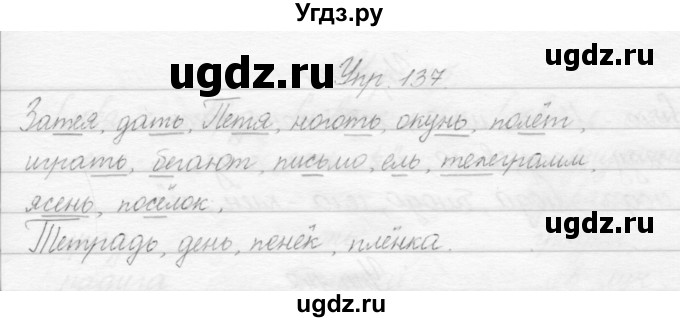 Угдз.ру
ugdz.ru ugdz.ru
Упр. 137
ugdz.ru
Затея, дать, Петя, ноготь, окунь, полёт,
играть, бегают, письмо, ель, телеграмм,
ясень, посёлок.
ugdz.ru ugdz.ru
Тетрадь, день, пенёк, плёнка.
ugdz.ru
ugdz.ru